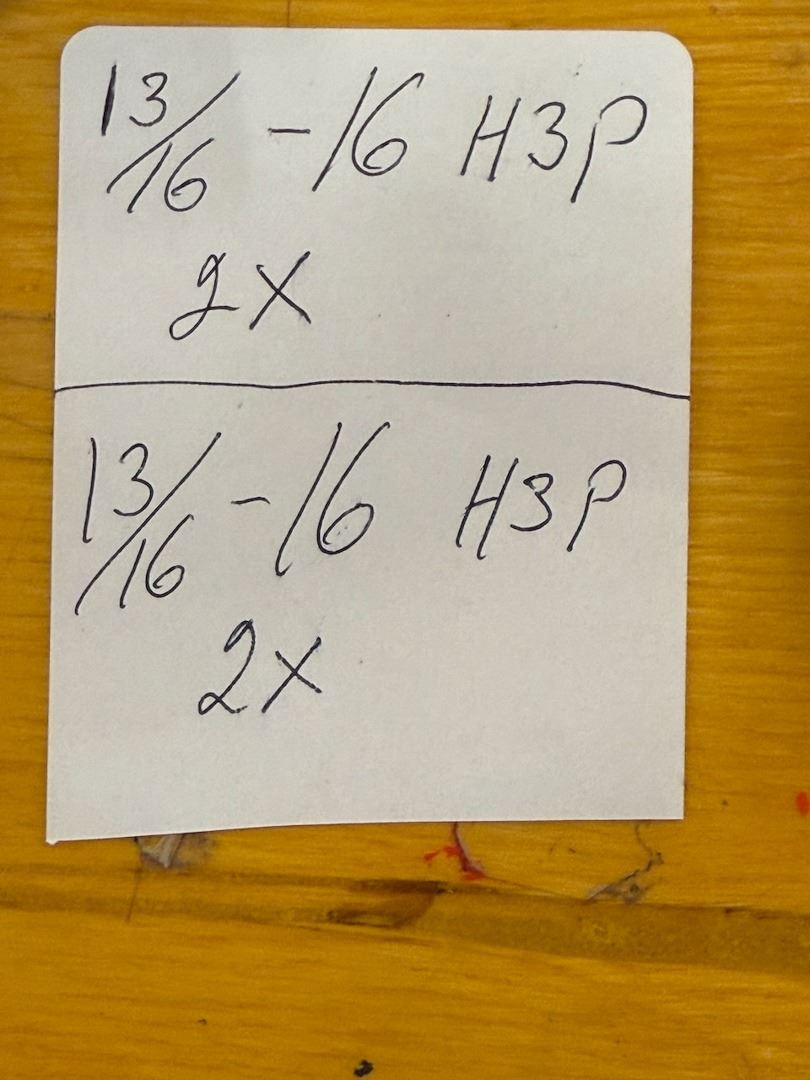 13/16 - 16 H3P
2X
13/16 - 16 H3P
2X